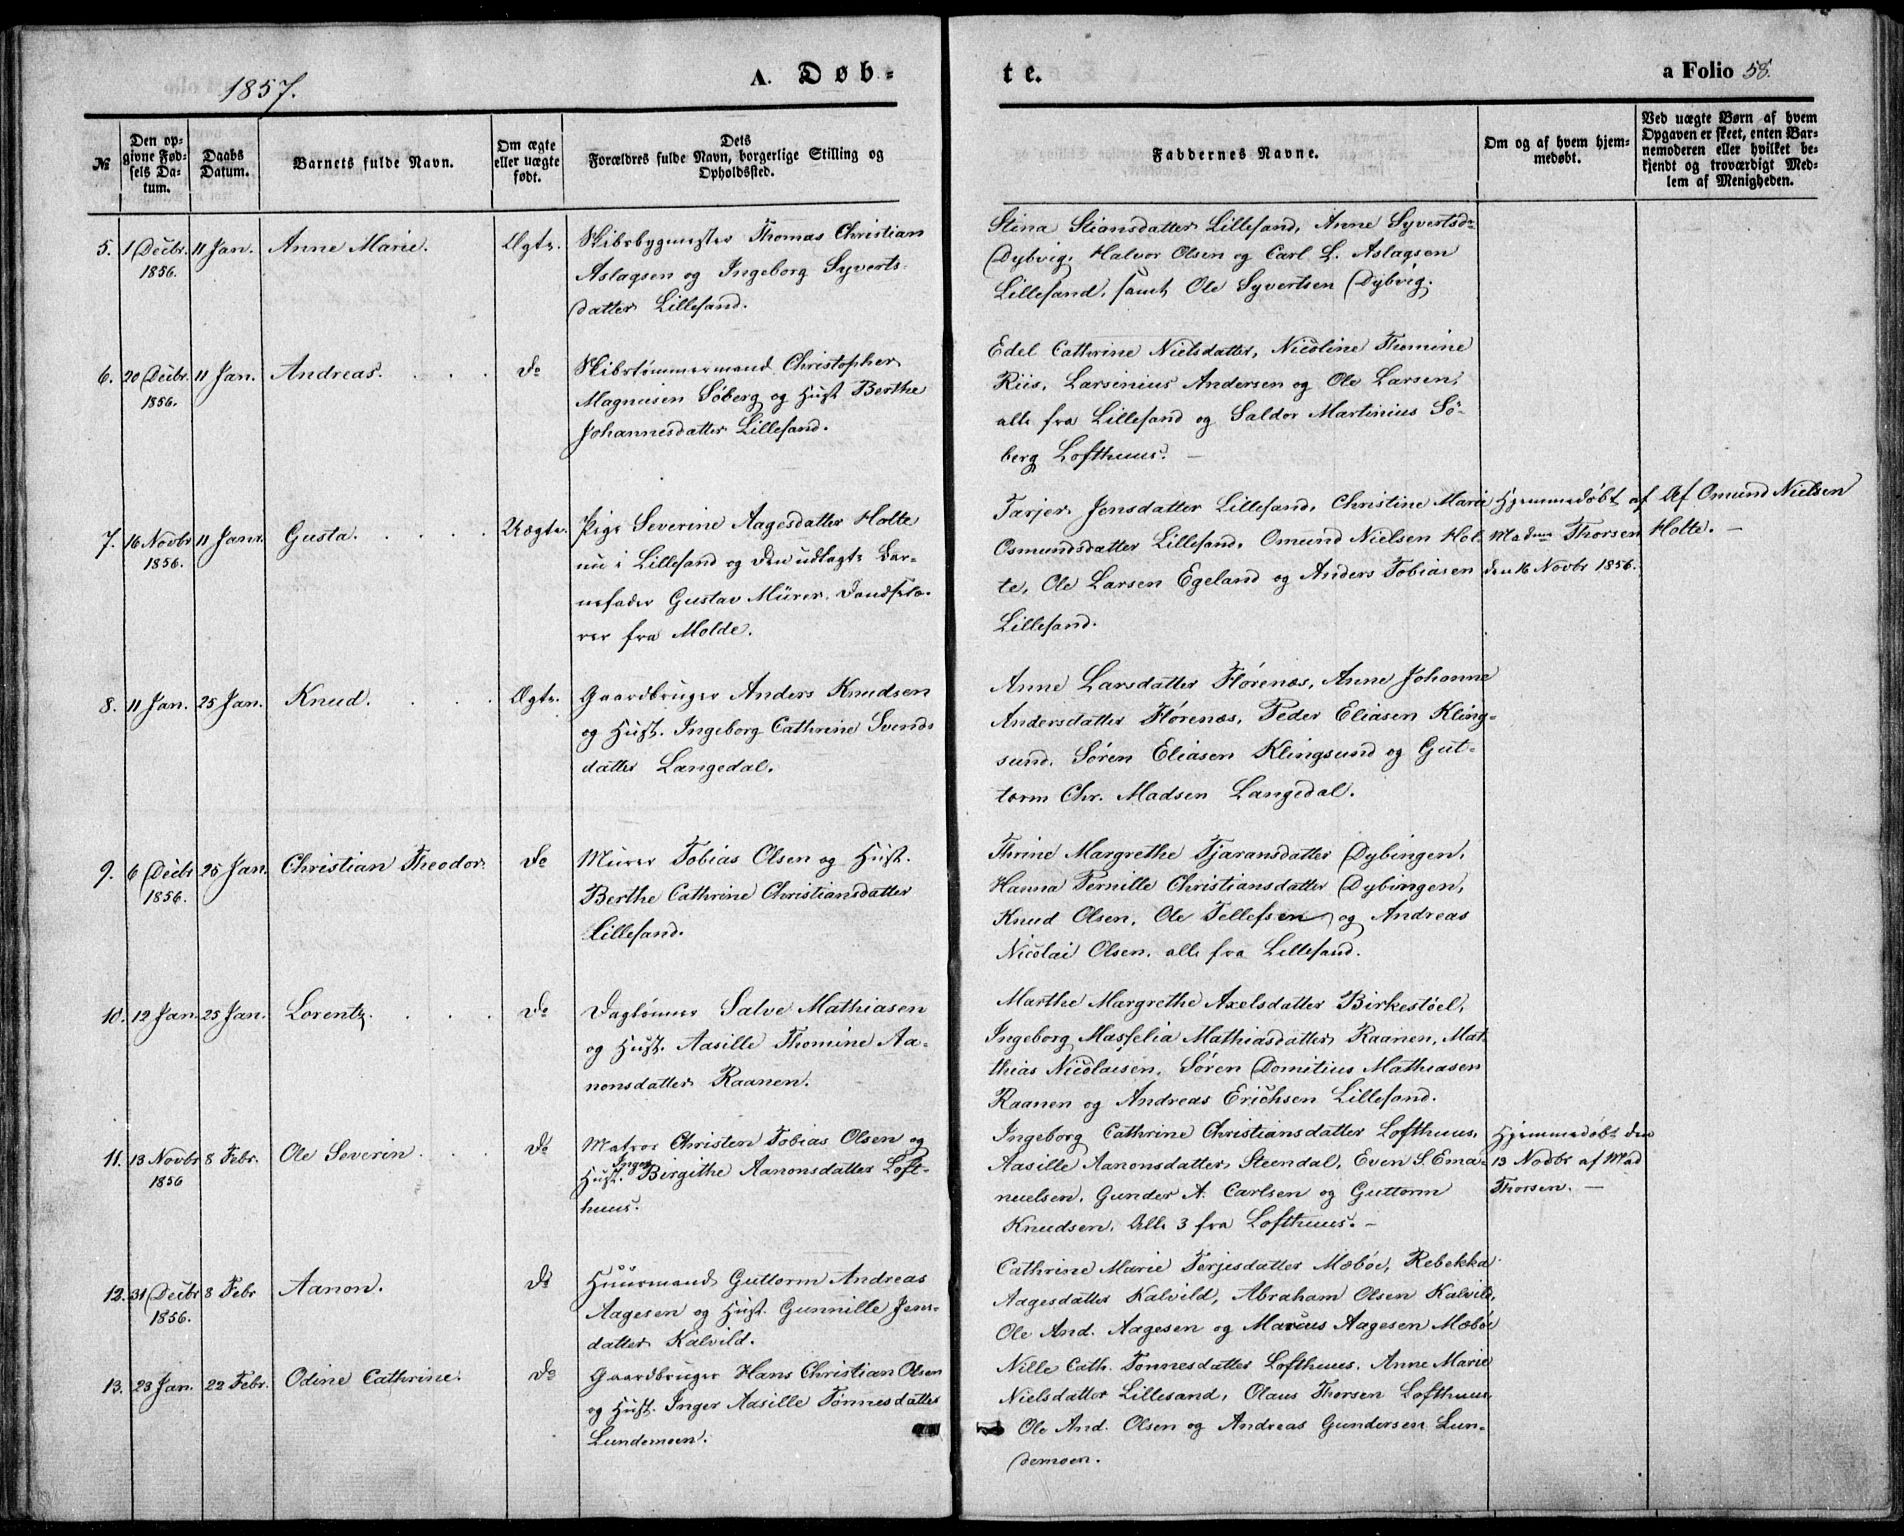 1857.
A. Døb-
te.
a Folio 58.
№
Den op-
givne Fød-
sels Da-
tum.
Daabs
Datum.
Barnets fulde Navn.
Om ægte
eller uægte
født.
Dets
Forældres fulde Navn, borgerlige Stilling og
Opholdssted.
Faddernes Navne.
Om og af hvem hjem-
medøbt.
Ved uægte Børn af hvem
Opgaven er skeet, enten Bar-
nemoderen eller hvilket be-
kjendt og troværdigt Med-
lem af Menigheden.
5. 1 Decbr. 1856. 11 Jan. Anne Marie. Ægte.
Skibsbygmester Thomas Christian
Aslagsen og Ingeborg Syverts-
datter Lillesand.
Stina Stiansdatter Lillesand, Anne Syvertsd
Dybvig, Halvor Olsen og Carl L. Aslagsen
Lillesand, samt Ole Syvertsen Dybvig.
6. 20 Decbr. 1856. 11 Jan. Andreas. do
Skibstømmermand Christopher
Magnusen Söberg og Hust. Berthe
Johannesdatter Lillesand.
Edel Cathrine Nielsdatter, Nicoline Thomine
Riis, Larsinius Andersen og Ole Larsen,
alle fra Lillesand og Saldor Martinius Sö-
berg Lofthuus. —
7. 16 Novbr 1856. 11 Janr. Gusta. Uægte.
Pige Severine Aagesdatter Holte
nu i Lillesand og den udlagte Bar-
nefader Gustav Mürer, Landsto-
rer fra Molde.
Tarjer Jensdatter Lillesand, Christine Marie
Osmundsdatter Lillesand, Omund Nielsen Hol-
te, Ole Larsen Egeland og Anders Tobiasen
Lillesand.
Hjemmedøbt af
Madam Thorsen
den 16 Novbr 1856.
Af Omund Nielsen
Holte. —
8. 11 Jan. 25 Jan. Knud. Ægte.
Gaardbruger Anders Knudsen
og Hust. Ingeborg Cathrine Svends-
datter Langedal.
Anne Larsdatter Flörenæs, Anne Johanne
Andersdatter Flörenæs, Peder Eliasen Kling-
sund, Søren Eliasen Klingsund og Gut-
torm Chr. Madsen Langedal.
9. 6 Decbr 1856. 25 Jan. Christian Theodor. do
Murer Tobias Olsen og Hust.
Berthe Cathrine Christiansdatter
Lillesand.
Thrine Margrethe Tjaransdatter Dybingen,
Hanna Pernille Christiansdatter Dybingen,
Knud Olsen, Ole Tellefsen og Andreas
Nicolai Olsen, alle fra Lillesand.
10. 12 Jan. 25 Jan. Lorentz. do
Daglønner Salve Mathiasen
og Hust. Aasille Thomine Aa-
nonsdatter Raanen.
Marthe Margrethe Axelsdatter Birkestöel,
Ingeborg Masselia Mathiasdatter Raanen, Mat-
thias Nicolaisen, Søren Domitius Mathiasen
Raanen og Andreas Erichsen Lillesand.
11. 13 Novbr 1856 8 Febr. Ole Severin. do
Matros Christen Tobias Olsen og
Hust. Inger Bergithe Aanonsdatter Loft-
huus.
Ingeborg Cathrine Christiansdatter Lofthuus,
Aasille Aanonsdatter Steendal, Even S. Ema-
nuelsen, Gunder A. Carlsen og Guttorm
Knudsen, Alle 3 fra Lofthuus. —
Hjemmedøbt den
13 Novbr af Mad
Thorsen. —
12. 31 Decbr 1856. 8 Febr Aanon. do
Huusmand Guttorm Andreas
Aagesen og Hust. Gunnille Jens-
datter Kalvild.
Cathrine Marie Terjesdatter Mæböe, Rebekka
Aagesdatter Kalvild, Abraham Olsen Kalvild,
Ole And. Aagesen og Marcus Aagesen Mæböe
13. 23 Jan. 22 Febr. Odine Cathrine. do
Gaardbruger Hans Christian Olsen
og Hust. Inger Aasille Tønnesdatter
Lundemoen.
Nille Cath. Tønnesdatter Lofthuus, Anne Marie
Nielsdatter Lillesand, Olaus Thorsen Lofthuus
Ole And. Olsen og Andreas Gundersen Lun-
demoen.